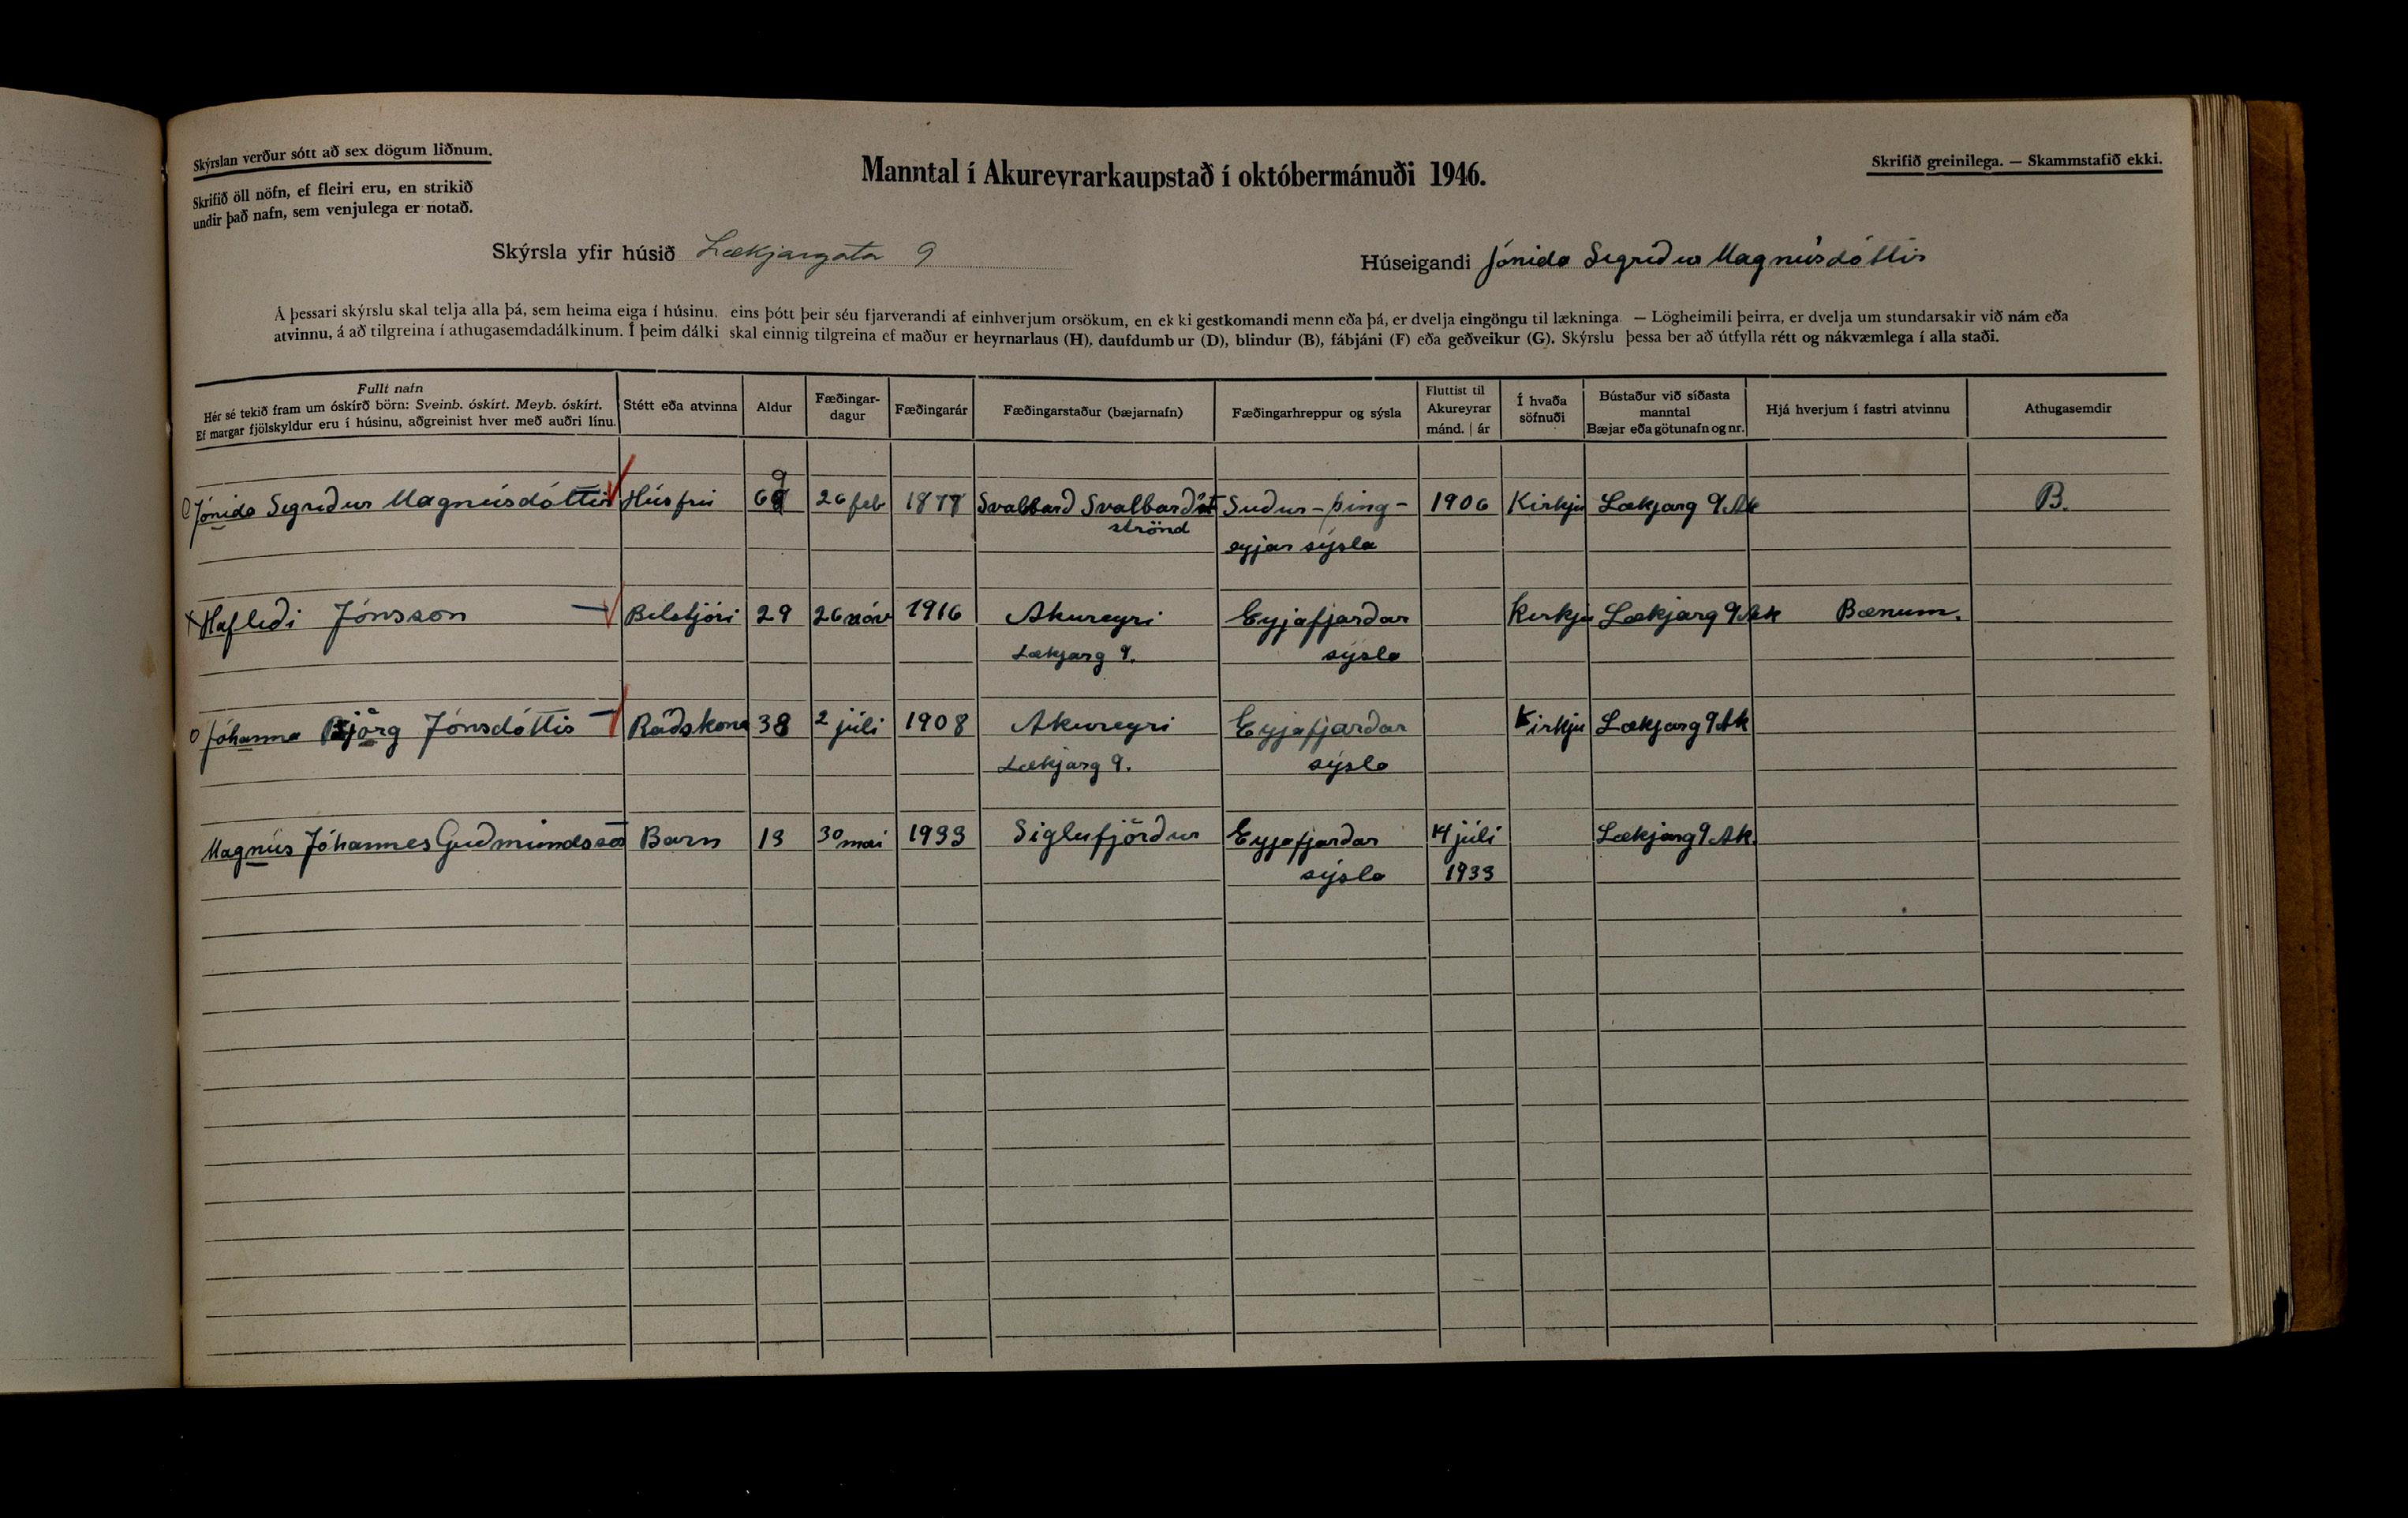 Skýrslan verður sótt að sex dögum liðnum.
Skrifið öll nöfn, ef fleiri eru, en strikið
undir það nafn, sem venjulega er notað.
Manntal í Akureyrarkaupstað í októbermánuði 1946.
Skrifið greinilega. — Skammstafið ekki.
Skýrsla yfir húsið Lækjargata 9
Húseigandi Jónida Sigríður Magnúsdóttir
Á þessari skýrslu skal telja alla þá, sem heima eiga í húsinu, eins þótt þeir séu fjarverandi af einhverjum orsökum, en ekki gestkomandi menn eða þá, er dvelja eingöngu til lækninga. — Lögheimili þeirra, er dvelja um stundarsakir við nám eða
atvinnu, á að tilgreina í athugasemdadálkinum. Í þeim dálki skal einnig tilgreina ef maður er heyrnarlaus (H), daufdumbur (D), blindur (B), fábjáni (F) eða geðveikur (G). Skýrslu þessa ber að útfylla rétt og nákvæmlega í alla staði.
Fullt nafn
Hér sé tekið fram um óskírð börn: Sveinb. óskírt. Meyb. óskírt.
Ef margar fjölskyldur eru í húsinu, aðgreinist hver með auðri línu.
Stétt eða atvinna
Aldur
Fæðingar-
dagur
Fæðingarár
Fæðingarstaður (bæjarnafn)
Fæðingarhreppur og sýsla
Fluttist til
Akureyrar
mánd. | ár
Í hvaða
söfnuði
Bústaður við síðasta
manntal
Bæjar eða götunafn og nr.
Hjá hverjum í fastri atvinnu
Athugasemdir
Jónida Sigríður Magnúsdóttir Húsfrú 69 26 feb 1877 Svalbard Svalbardst Sudur-þing- 1906 Kirkju Lækjarg 9 Ak B.
strönd eyjar sýsla
Hafliði Jónsson Bílstjóri 29 26 nóv 1916 Akureyri Eyjafjardar Kirkju Lækjarg 9 Ak Bænum.
Lækjarg 9. sýsla
Jóhanna Björg Jónsdóttir Rádskona 38 2 júli 1908 Akureyri Eyjafjardar Kirkju Lækjarg 9 Ak
Lækjarg 9. sýsla
Magnús Jóhannes Gudmundsson Barn 13 30 mai 1933 Siglufjördur Eyjafjardar 14 júli Lækjarg 9 Ak.
sýsla 1933